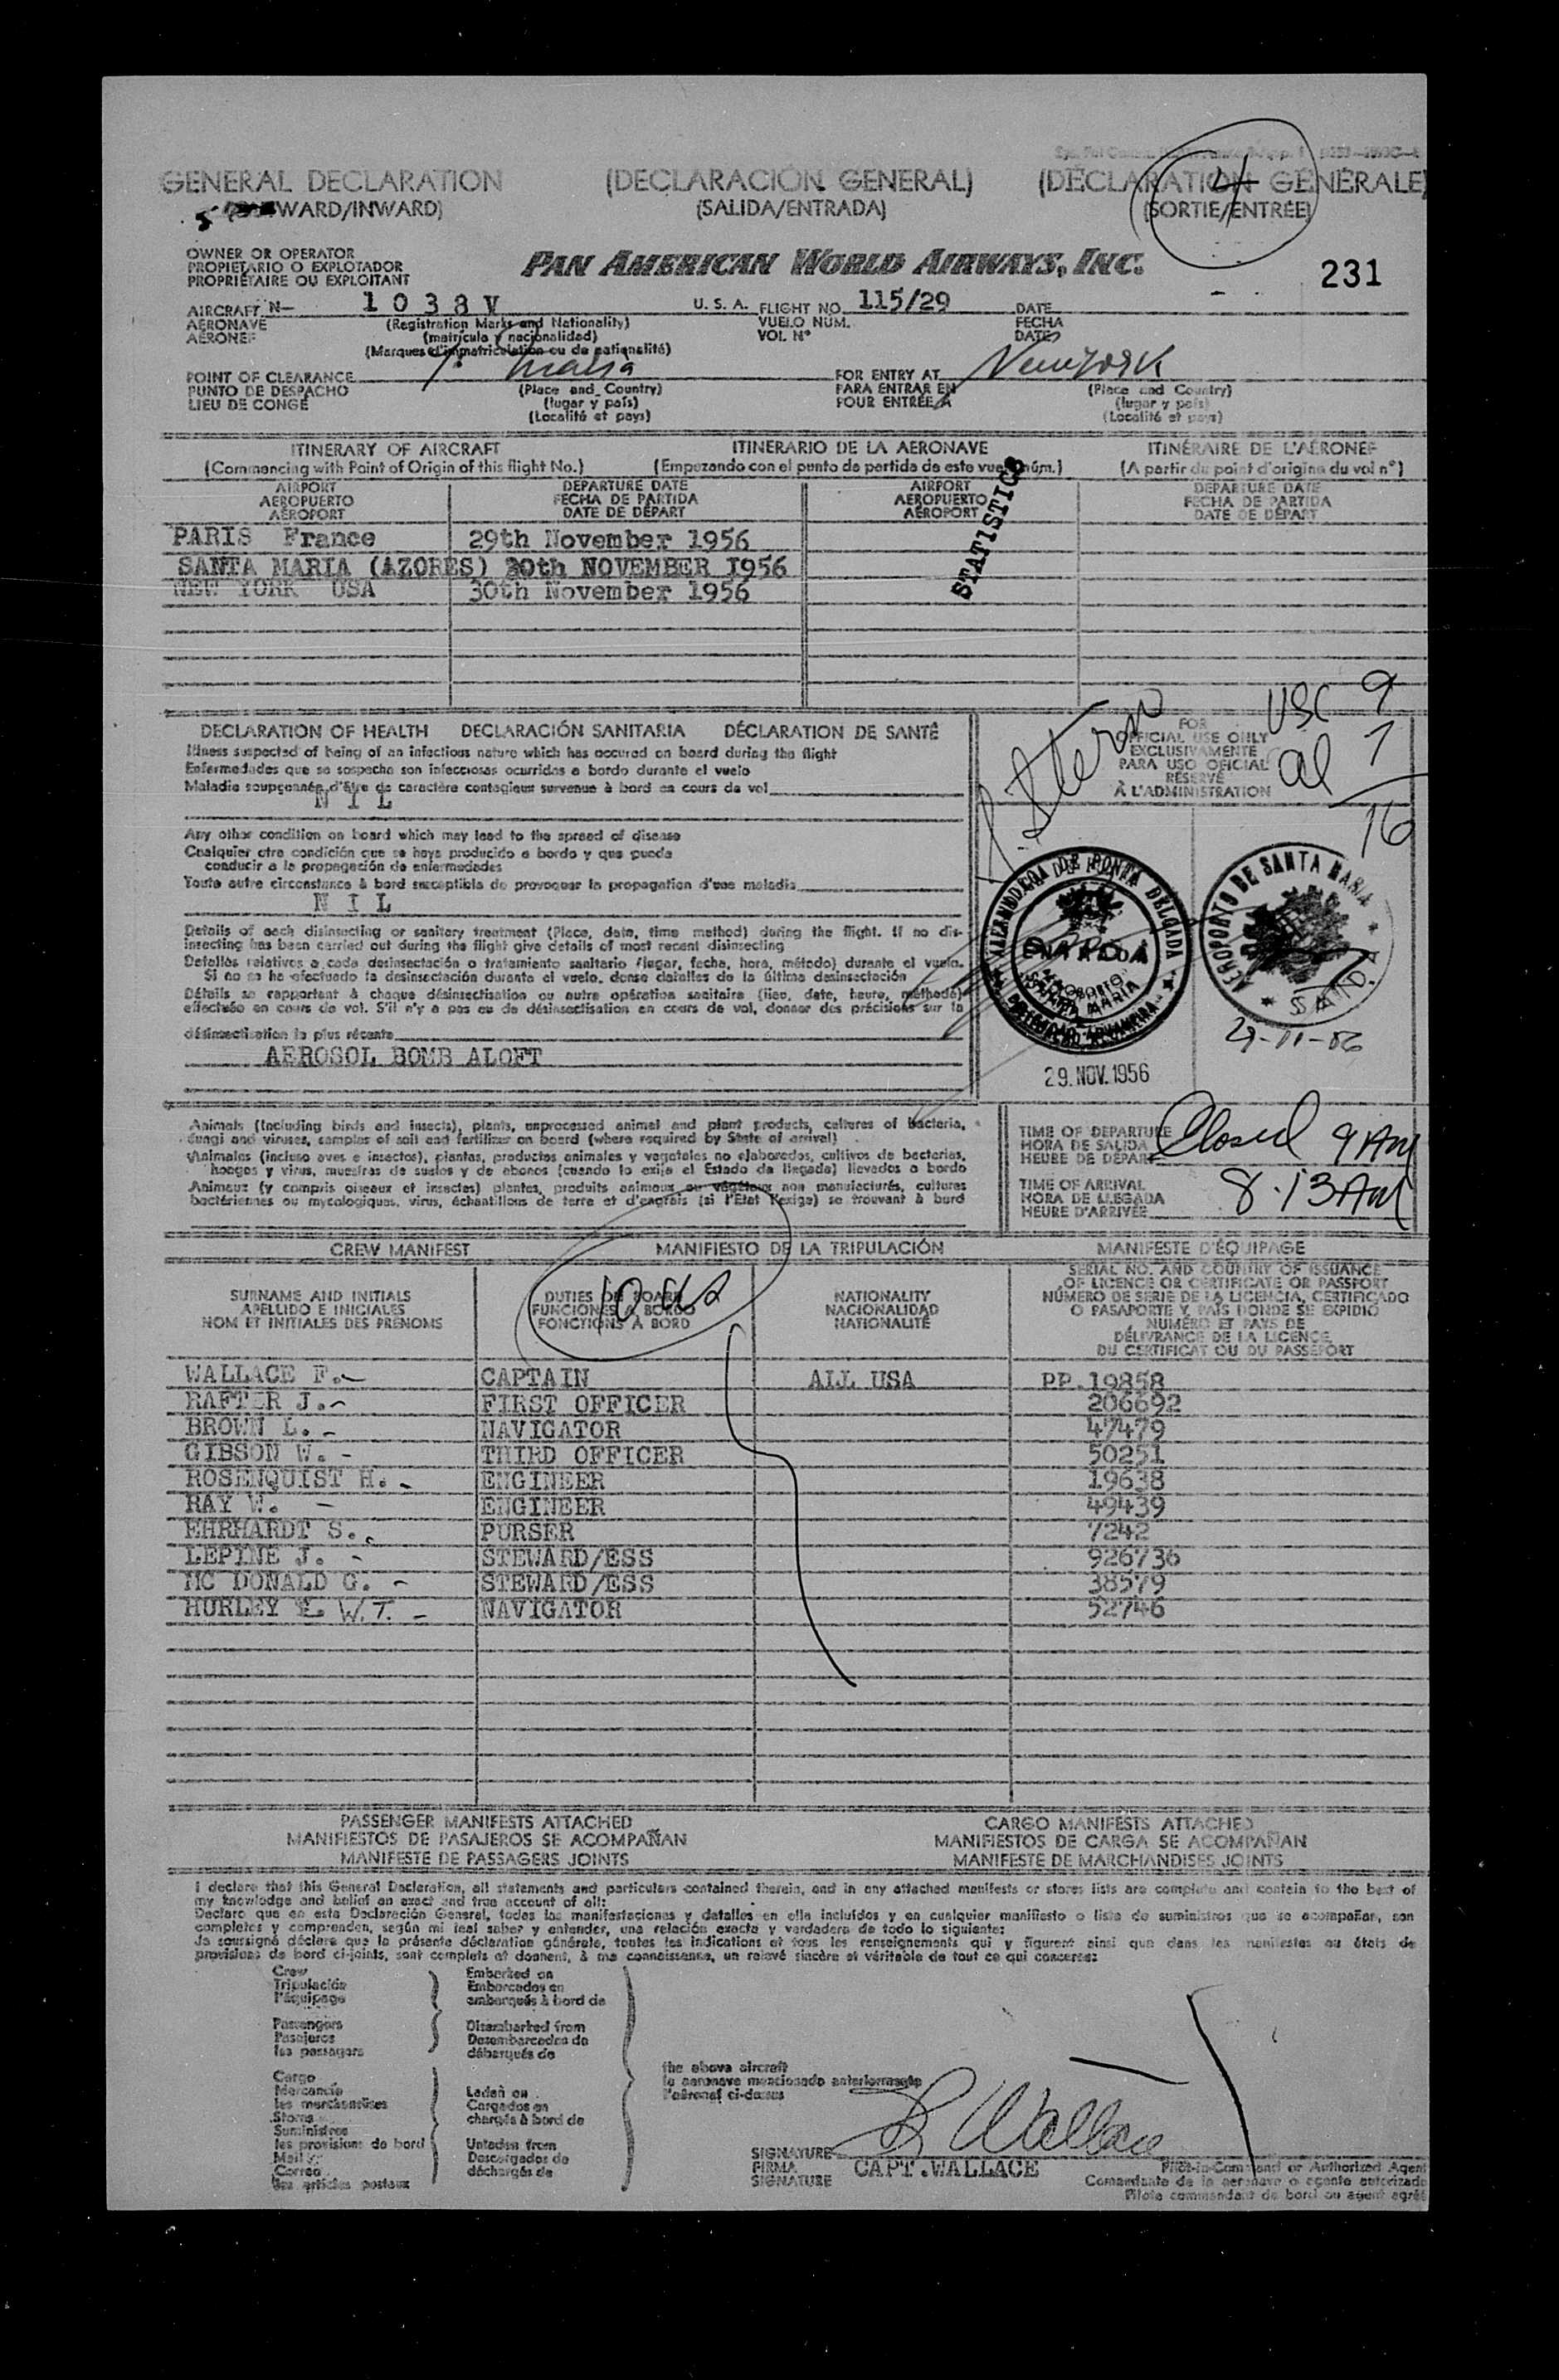 GENERAL DECLARATION (DECLARACIÓN GENERAL) (DÉCLARATION GÉNÉRALE)
WARD/INWARD) (SALIDA/ENTRADA) (SORTIE/ENTRÉE)
4
OWNER OR OPERATOR
PROPIETARIO O EXPLOTADOR
PROPRIÉTAIRE OU EXPLOITANT
PAN AMERICAN WORLD AIRWAYS, INC.
231
AIRCRAFT N- 1038V U. S. A. FLIGHT NO. 115/29 DATE
AERONAVE (Registration Marks and Nationality) VUELO NÚM. FECHA
AÉRONEF (matrícula y nacionalidad) VOL N° DATE
(Marques d'immatriculation ou de nationalité)
POINT OF CLEARANCE Maria FOR ENTRY AT New York
PUNTO DE DESPACHO (Place and Country) PARA ENTRAR EN (Place and Country)
LIEU DE CONGÉ (lugar y país) POUR ENTRÉE À (lugar y país)
(Localité et pays) (Localité et pays)
ITINERARY OF AIRCRAFT ITINERARIO DE LA AERONAVE ITINÉRAIRE DE L'AÉRONEF
(Commencing with Point of Origin of this flight No.) (Empezando con el punto de partida de este vuelo núm.) (A partir du point d'origine du vol n°)
AIRPORT DEPARTURE DATE AIRPORT DEPARTURE DATE
AEROPUERTO FECHA DE PARTIDA AEROPUERTO FECHA DE PARTIDA
AÉROPORT DATE DE DÉPART AÉROPORT DATE DE DÉPART
STATISTICS
PARIS France 29th November 1956
SANTA MARIA (AZORES) 30th NOVEMBER 1956
NEW YORK USA 30th November 1956
DECLARATION OF HEALTH DECLARACIÓN SANITARIA DÉCLARATION DE SANTÉ
Illness suspected of being of an infectious nature which has occured on board during the flight
Enfermedades que se sospecha son infecciosas ocurridas a bordo durante el vuelo
Maladie soupçonnée d'être de caractère contagieux survenue à bord en cours de vol
NIL
Any other condition on board which may lead to the spread of disease
Cualquier otra condición que se haya producido a bordo y que pueda
conducir a la propagación de enfermedades
Toute autre circonstance à bord susceptible de provoquer la propagation d'une maladie
NIL
Details of each disinsecting or sanitary treatment (Place, date, time method) during the flight. If no dis-
insecting has been carried out during the flight give details of most recent disinsecting
Detalles relativos a cada desinsectación o tratamiento sanitario (lugar, fecha, hora, método) durante el vuelo.
Si no se ha efectuado la desinsectación durante el vuelo, dense detalles de la última desinsectación
Détails se rapportant à chaque désinsectisation ou autre opération sanitaire (lieu, date, heure, méthode)
effectuée en cours de vol. S'il n'y a pas eu de désinsectisation en cours de vol, donner des précisions sur la
désinsectisation la plus récente
AEROSOL BOMB ALOFT
FOR
OFFICIAL USE ONLY
EXCLUSIVAMENTE
PARA USO OFICIAL
RÉSERVÉ
À L'ADMINISTRATION
USC 9
al 7
16
ALFANDEGA DE PONTA DELGADA
ENTRADA
AEROPORTO
SANTA MARIA
29. NOV. 1956
AEROPORTO DE SANTA MARIA
SAIDA
29-11-56
Animals (including birds and insects), plants, unprocessed animal and plant products, cultures of bacteria,
fungi and viruses, samples of soil and fertilizer on board (where required by State of arrival)
Animales (incluso aves e insectos), plantas, productos animales y vegetales no elaborados, cultivos de bacterias,
hongos y virus, muestras de suelos y de abonos (cuando lo exija el Estado de llegada) llevados a bordo
Animaux (y compris oiseaux et insectes) plantes, produits animaux ou végétaux non manufacturés, cultures
bactériennes ou mycologiques, virus, échantillons de terre et d'engrais (si l'Etat l'exige) se trouvant à bord
TIME OF DEPARTURE Closed 9 AM
HORA DE SALIDA
HEURE DE DÉPART
TIME OF ARRIVAL 8.13 AM
HORA DE LLEGADA
HEURE D'ARRIVÉE
CREW MANIFEST MANIFIESTO DE LA TRIPULACIÓN MANIFESTE D'ÉQUIPAGE
SURNAME AND INITIALS
APELLIDO E INICIALES
NOM ET INITIALES DES PRÉNOMS
DUTIES ON BOARD
FUNCIONES A BORDO
FONCTIONS À BORD
10
NATIONALITY
NACIONALIDAD
NATIONALITÉ
SERIAL NO. AND COUNTRY OF ISSUANCE
OF LICENCE OR CERTIFICATE OR PASSPORT
NÚMERO DE SERIE DE LA LICENCIA, CERTIFICADO
O PASAPORTE Y PAÍS DONDE SE EXPIDIÓ
NUMÉRO ET PAYS DE
DÉLIVRANCE DE LA LICENCE,
DU CERTIFICAT OU DU PASSEPORT
WALLACE F. CAPTAIN ALL USA PP.19858
RAFTER J. FIRST OFFICER 206692
BROWN L. NAVIGATOR 47479
GIBSON W. THIRD OFFICER 50251
ROSENQUIST H. ENGINEER 19638
RAY W. ENGINEER 49439
EHRHARDT S. PURSER 7242
LEPINE J. STEWARD/ESS 926736
MC DONALD G. STEWARD/ESS 38579
HURLEY W.T. NAVIGATOR 52746
PASSENGER MANIFESTS ATTACHED CARGO MANIFESTS ATTACHED
MANIFIESTOS DE PASAJEROS SE ACOMPAÑAN MANIFIESTOS DE CARGA SE ACOMPAÑAN
MANIFESTE DE PASSAGERS JOINTS MANIFESTE DE MARCHANDISES JOINTS
I declare that this General Declaration, all statements and particulars contained therein, and in any attached manifests or stores lists are complete and contain to the best of
my knowledge and belief an exact and true account of all:
Declaro que en esta Declaración General, todas las manifestaciones y detalles en ella incluídos y en cualquier manifiesto o lista de suministros que se acompañan, son
completos y comprenden, según mi leal saber y entender, una relación exacta y verdadera de todo lo siguiente:
Je soussigné déclare que la présente déclaration générale, toutes les indications et tous les renseignements qui y figurent ainsi que dans les manifestes ou états de
provisions de bord ci-joints, sont complets et donnent, à ma connaissance, un relevé sincère et véritable de tout ce qui concerne:
Crew Embarked on
Tripulación Embarcados en
l'équipage embarqués à bord de
Passengers Disembarked from
Pasajeros Desembarcados de
les passagers débarqués de
the above aircraft
la aeronave mencionada anteriormente
l'aéronef ci-dessus
Cargo
Mercancía Laden on
les marchandises Cargados en
Stores chargés à bord de
Suministros
les provisions de bord Unladen from
Mail Descargados de
Correo déchargés de
les articles postaux
Wallace
SIGNATURE
FIRMA CAPT.WALLACE
SIGNATURE
Pilot-in-Command or Authorized Agent
Comandante de la aeronave o agente autorizado
Pilote commandant de bord ou agent agréé